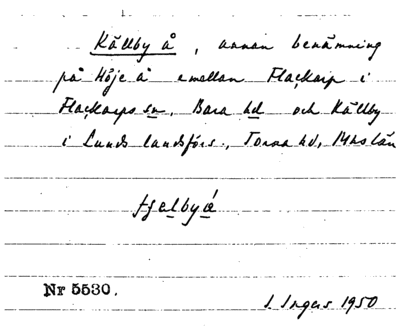 Källby å, annan benämning
på Höje å emellan Flackarp i
Flackarps sn, Bara hd och Källby
i Lunds landsförs., Torna hd, Mhs län
tjelbyå
Nr 5530.
I. Ingers 1950